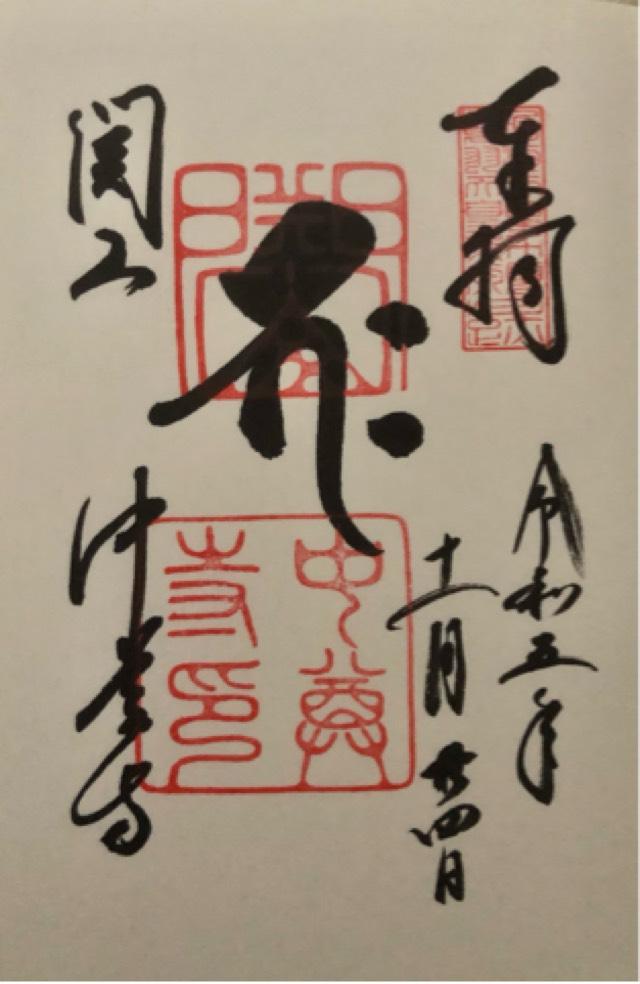 奉拝
令和五年
十一月廿四日
関山
中尊寺
中尊
寺印